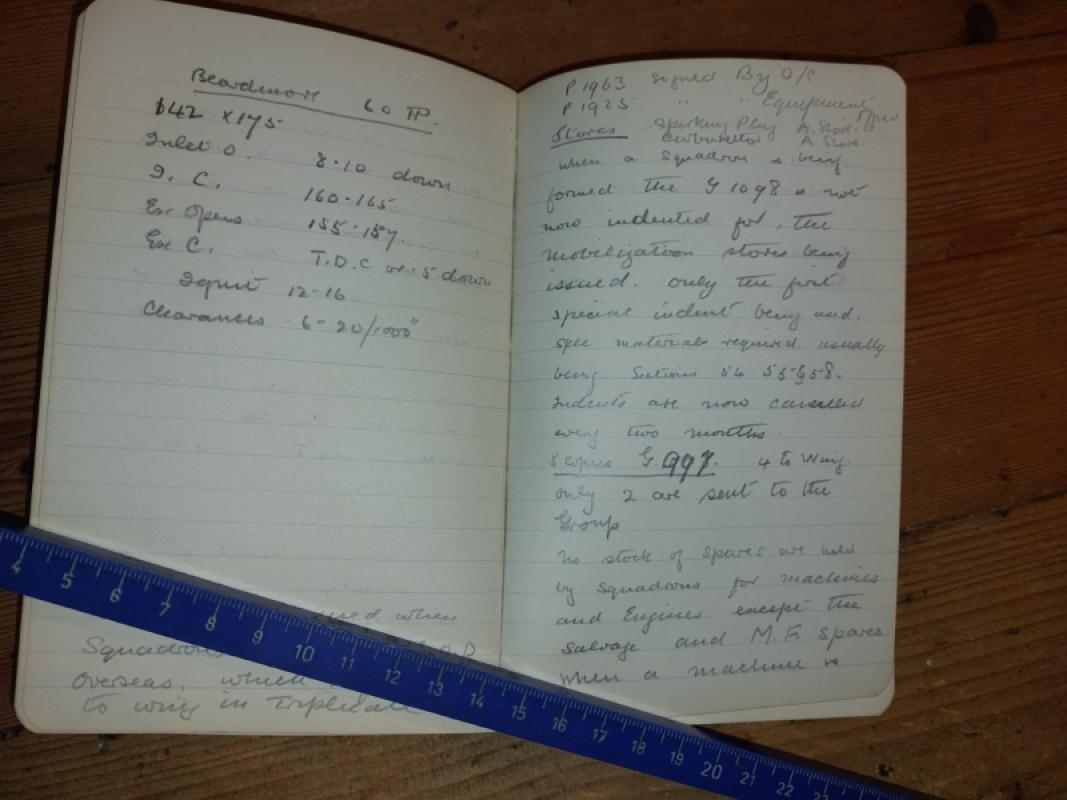 Beardmore 60 HP.
142 x 175
Inlet O. 8-10 down
I. C. 160-165
Ex Opens 155-157.
Ex C. T.D.C or 5 down
Ignit 12-16
Clearances 6-20/1000"
used when
Squadrons
overseas. which
to wing in Triplicate
P.1963 signed By O/C
P 1925 " " Equipment
Stores Sparking Plug A. Store.
Carburettor A Store.
when a squadron is being
formed the G 1098 is not
now indented for, the
mobilization stores being
issued. only the first
special indent being used.
spec materials required. usually
being Sections 54 55 & 58.
Indents are now cancelled
every two months.
5 copies G.997. 4 to Wing.
only 2 are sent to the
Group
No stock of spares are held
by squadrons for machines
and Engines except the
salvage and M.F. spares
when a machine is
4 5 6 7 8 9 10 11 12 13 14 15 16 17 18 19 20 21 22 23